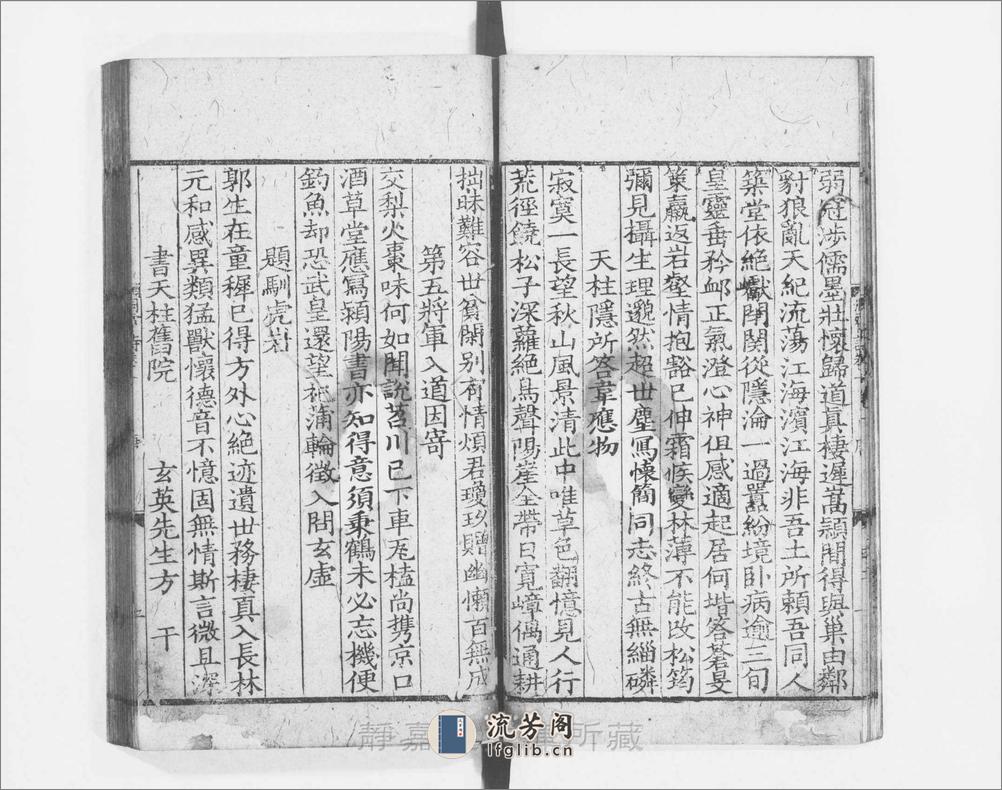 弱冠涉儒墨壯懷歸道真棲遲萬潁閒得與巢由鄰
豺狼亂天紀流蕩江海濱江海非吾土所賴吾同人
築堂依絕巘閉關從隱淪一過囂紛境卧病逾三旬
皇靈垂矜䘏正氣澄心神但感適起居何堦答蒼旻
策羸返岩壑情抱豁已伸霜候變林薄不能改松筠
彌見攝生理邈然超世塵寫懷簡同志終古無緇磷
天柱隱所答韋應物
寂寞一長望秋山風景清此中唯草色翻憶見人行
荒徑饒松子深蘿絕鳥聲陽崖全帶日寬嶂偶通耕
拙昧難容世貧閑別有情煩君瓊玖贈幽懶百無成
第五將軍入道因寄
交梨火棗味何如聞說苕川已下車瓦榼尚攜京口
酒草堂應寫潁陽書亦知得意須乘鶴未必忘機便
釣魚却恐武皇還望祀蒲輪徵入問玄虛
題馴虎岩
郭生在童穉已得方外心絕迹遺世務棲真入長林
元和感異類猛獸懷德音不憶固無情斯言微且深
書天柱舊院
玄英先生方　干
流芳阁
lfglib.cn
静嘉 所藏